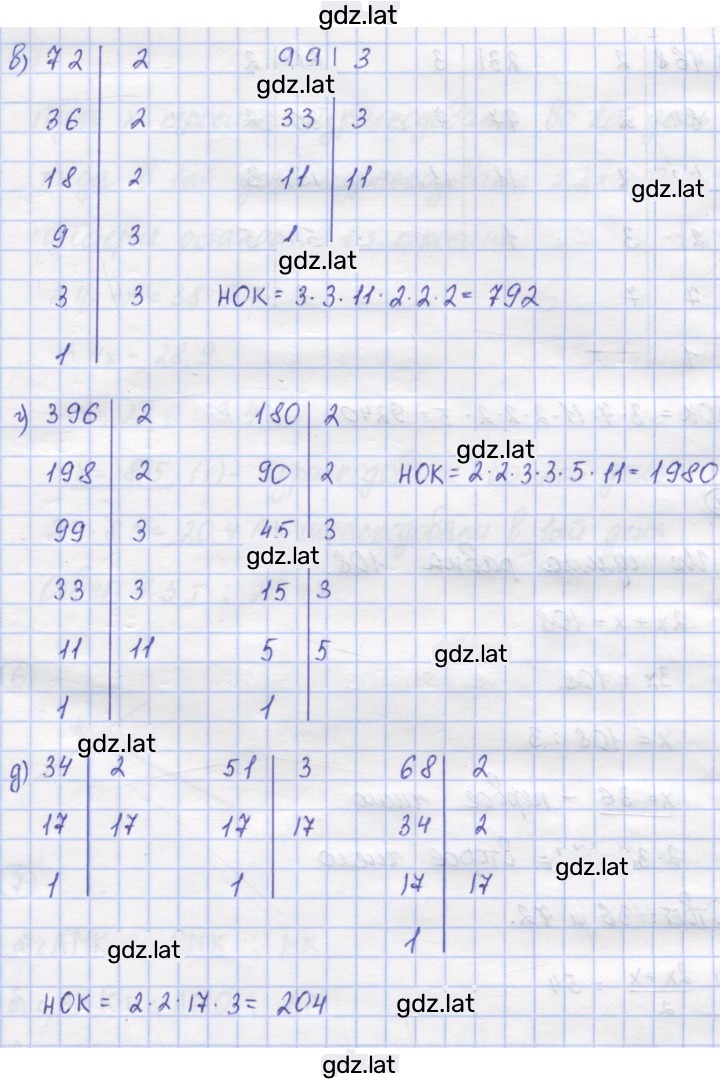 gdz.lat
в) 72 | 2 99 | 3
gdz.lat
36 | 2 33 | 3
18 | 2 11 | 11
gdz.lat
9 | 3 1
gdz.lat
3 | 3 НОК = 3·3·11·2·2·2 = 792
1
г) 396 | 2 180 | 2
gdz.lat
198 | 2 90 | 2 НОК = 2·2·3·3·5·11 = 1980
99 | 3 45 | 3
gdz.lat
33 | 3 15 | 3
11 | 11 5 | 5
gdz.lat
1 1
gdz.lat
д) 34 | 2 51 | 3 68 | 2
17 | 17 17 | 17 34 | 2
gdz.lat
1 1 17 | 17
1
gdz.lat
НОК = 2·2·17·3 = 204
gdz.lat
gdz.lat